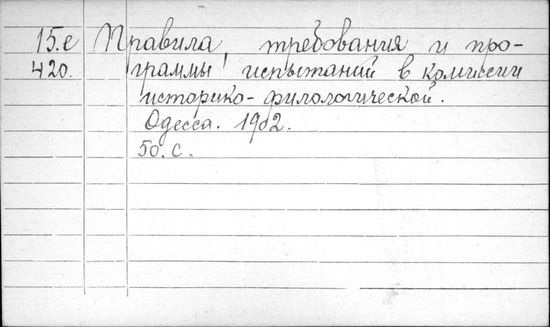 15.е Правила, требования и про-
420. граммы испытаний в комиссии
историко-филологической.
Одесса. 1902.
50. с.